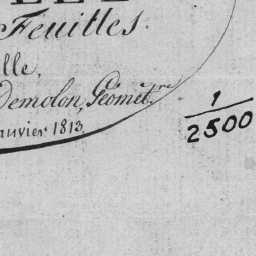 Feuilles.
lle,
Demolon, Géomèt.re
anvier 1813.
1/2500